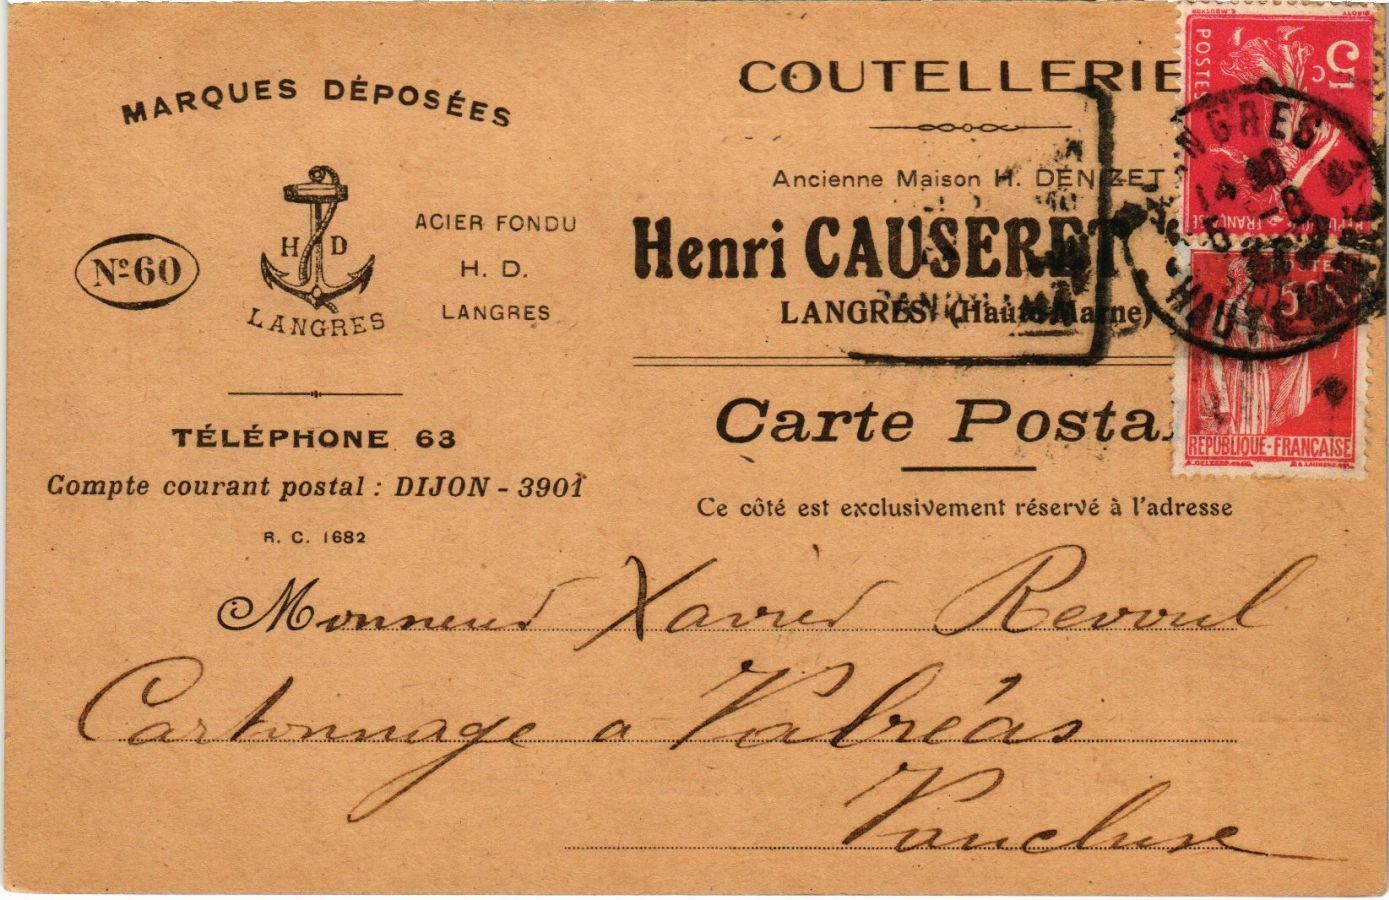 MARQUES DÉPOSÉES
Nº 60
H D
LANGRES
ACIER FONDU
H. D.
LANGRES
TÉLÉPHONE 63
Compte courant postal : DIJON - 3901
R. C. 1682
COUTELLERIE
Ancienne Maison H. DENIZET
Henri CAUSERET
LANGRES (Haute-Marne)
Carte Posta
Ce côté est exclusivement réservé à l'adresse
POSTES
5c
RÉPUBLIQUE FRANÇAISE
LANGRES
HAUTE MARNE
POSTES
50
REPUBLIQUE-FRANÇAISE
Monsieur Xavier Revoul
Cartonnage a Valréas
Vaucluse